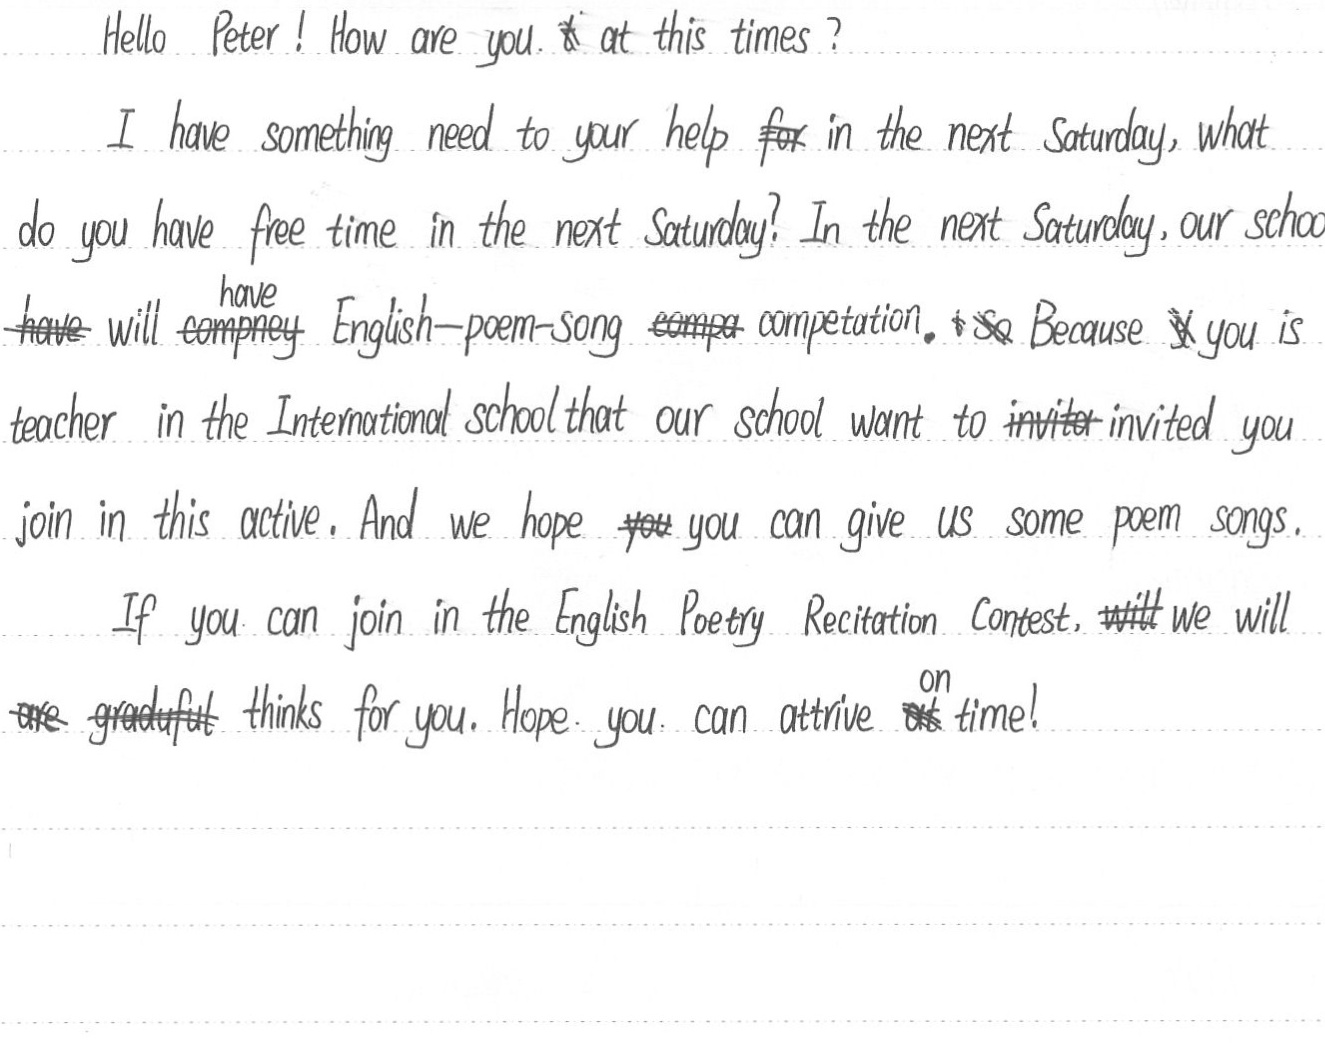 Hello Peter! How are you. at this times?
I have something need to your help in the next Saturday, what
do you have free time in the next Saturday? In the next Saturday, our schoo
will have English-poem-song competation. Because you is
teacher in the International school that our school want to invited you
join in this active. And we hope you can give us some poem songs.
If you can join in the English Poetry Recitation Contest, we will
thinks for you. Hope. you. can attrive on time!